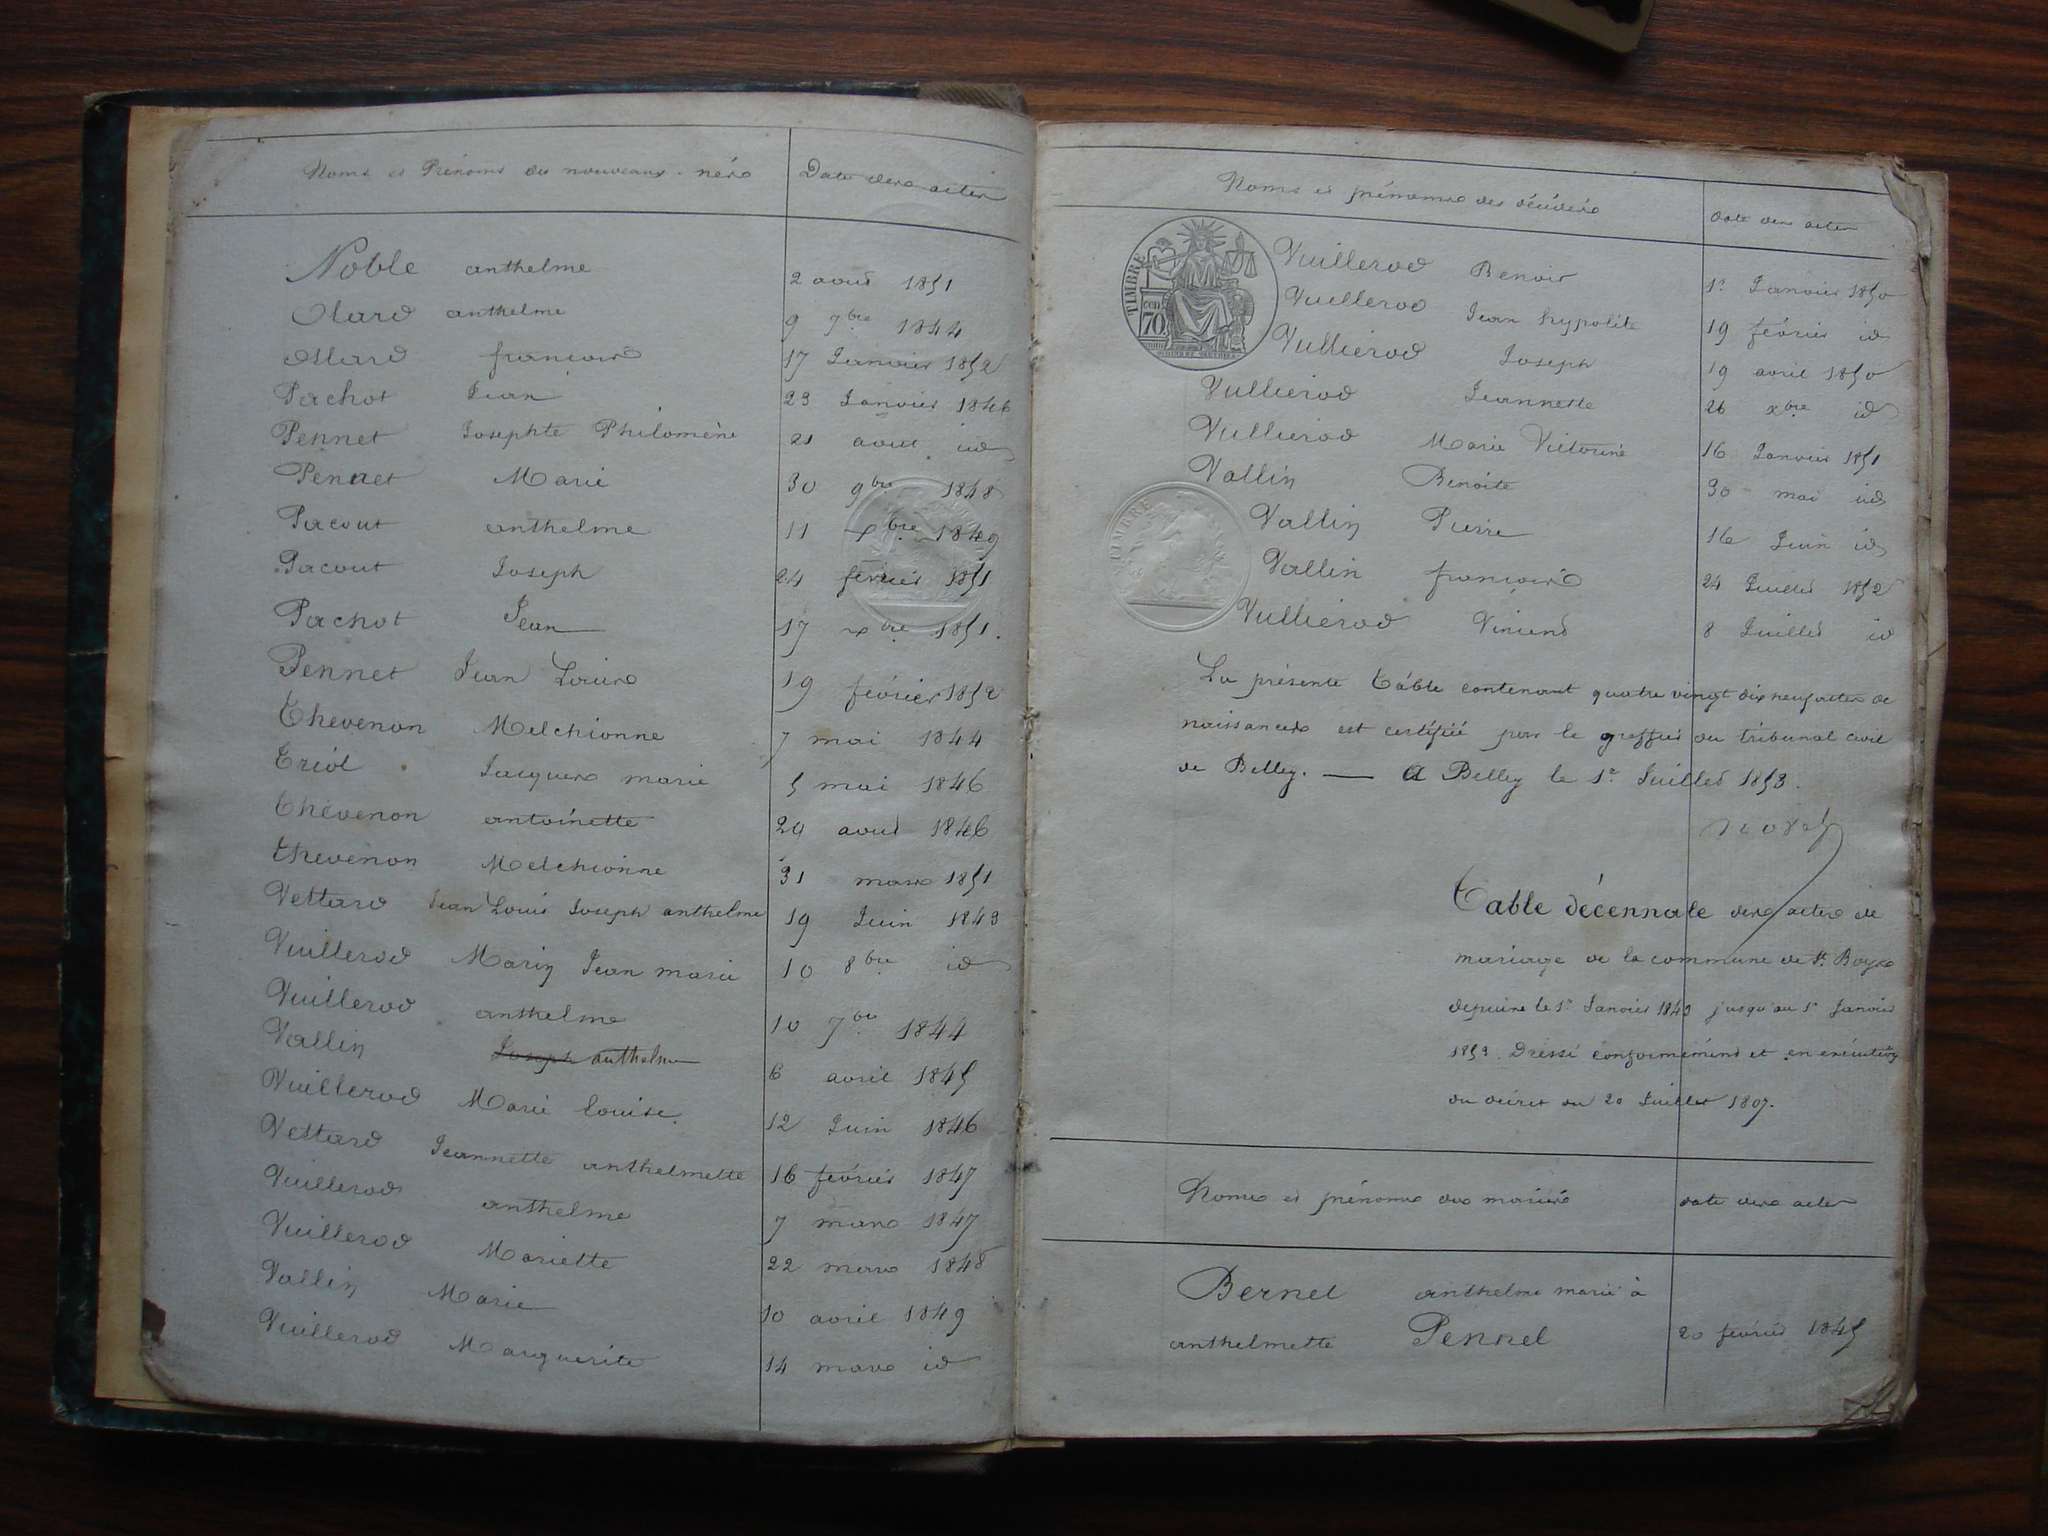 Noms et Prénoms des nouveaux-nés Date des actes
Noble anthelme 2 aout 1851
Olard anthelme 9 7bre 1844
Ollard françois 17 Janvier 1852
Pachot Jean 23 Janvier 1846
Pennet Josephte Philomène 21 aout id
Pennet Marie 30 9bre 1848
Pacout anthelme 11 xbre 1849
Pacout Joseph 24 février 1851
Pachot Jean 17 xbre 1851.
Pennet Jean Louis 19 février 1852
Thevenon Melchionne 7 mai 1844
Triol Jacques marie 5 mai 1846
Thévenon antoinette 29 aout 1846
Thevenon Melchionne 31 mars 1851
Vettard Jean Louis Joseph anthelme 19 Juin 1843
Vuillerod Marie Jean marie 10 8bre id
Vuillerod anthelme 10 7bre 1844
Vallin Joseph anthelme 6 avril 1845
Vuillerod Marie Louise 12 Juin 1846
Vettard Jeannette anthelmette 16 février 1847
Vuillerod anthelme 7 mars 1847
Vuillerod Mariette 22 mars 1848
Vallin Marie 10 avril 1849
Vuillerod Marguerite 14 mars id
Noms et prénoms des décédés date des actes
TIMBRE
70
Vuillerod Benoit 1er Janvier 1850
Vuillerod Jean hypolite 19 février id
Vullierod Joseph 19 avril 1850
Vullierod Jeannette 26 xbre id
Vullierod Marie Victorine 16 Janvier 1851
Vallin Benoite 30 mai id
TIMBRE
Vallin Pierre 16 Juin id
Vallin françois 24 Juillet 1852
Vullierod Vincent 8 Juillet id
La présente table contenant quatre vingt dix neuf actes de
naissances est certifiée par le greffier du tribunal civil
de Belley. — A Belley le 1er Juillet 1853.
Table décennale des actes de
mariage de la commune de St. Boys
depuis le 1er Janvier 1843 jusqu'au 1er Janvier
1853. Dressé conformément et en exécution
du décret du 20 Juillet 1807.
Noms et prénoms des mariés date des actes
Bernel anthelme marié à
anthelmette Pennel 20 février 1845